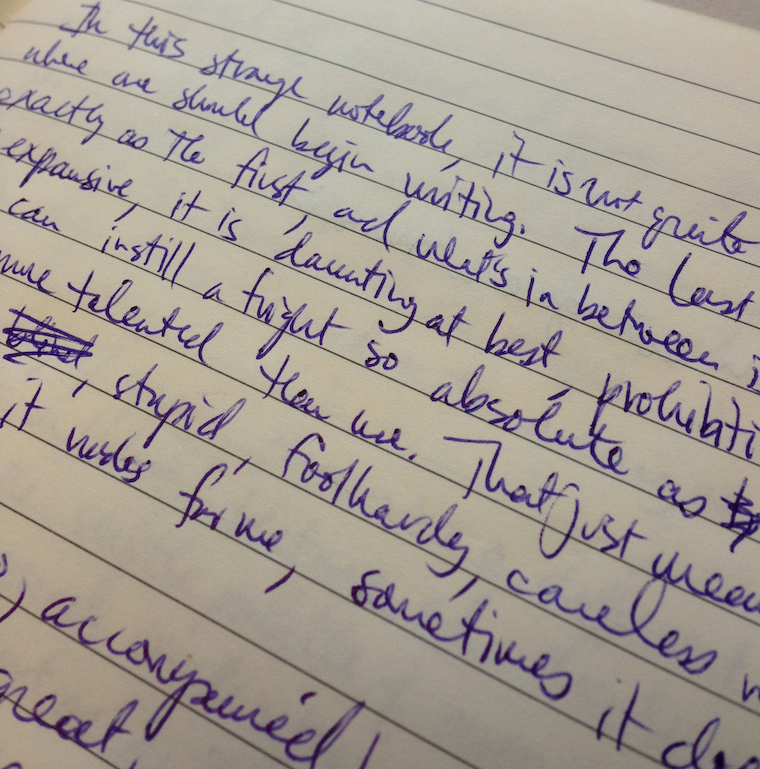 In this strange notebook, it is not quite
where one should begin writing. The last
exactly as the first, and what's in between i
expansive, it is daunting at best, prohibiti
can instill a fright so absolute as
more talented than me. That just mean
, stupid, foolhardy, careless
it works for me, sometimes it do
) accompanied!
great,